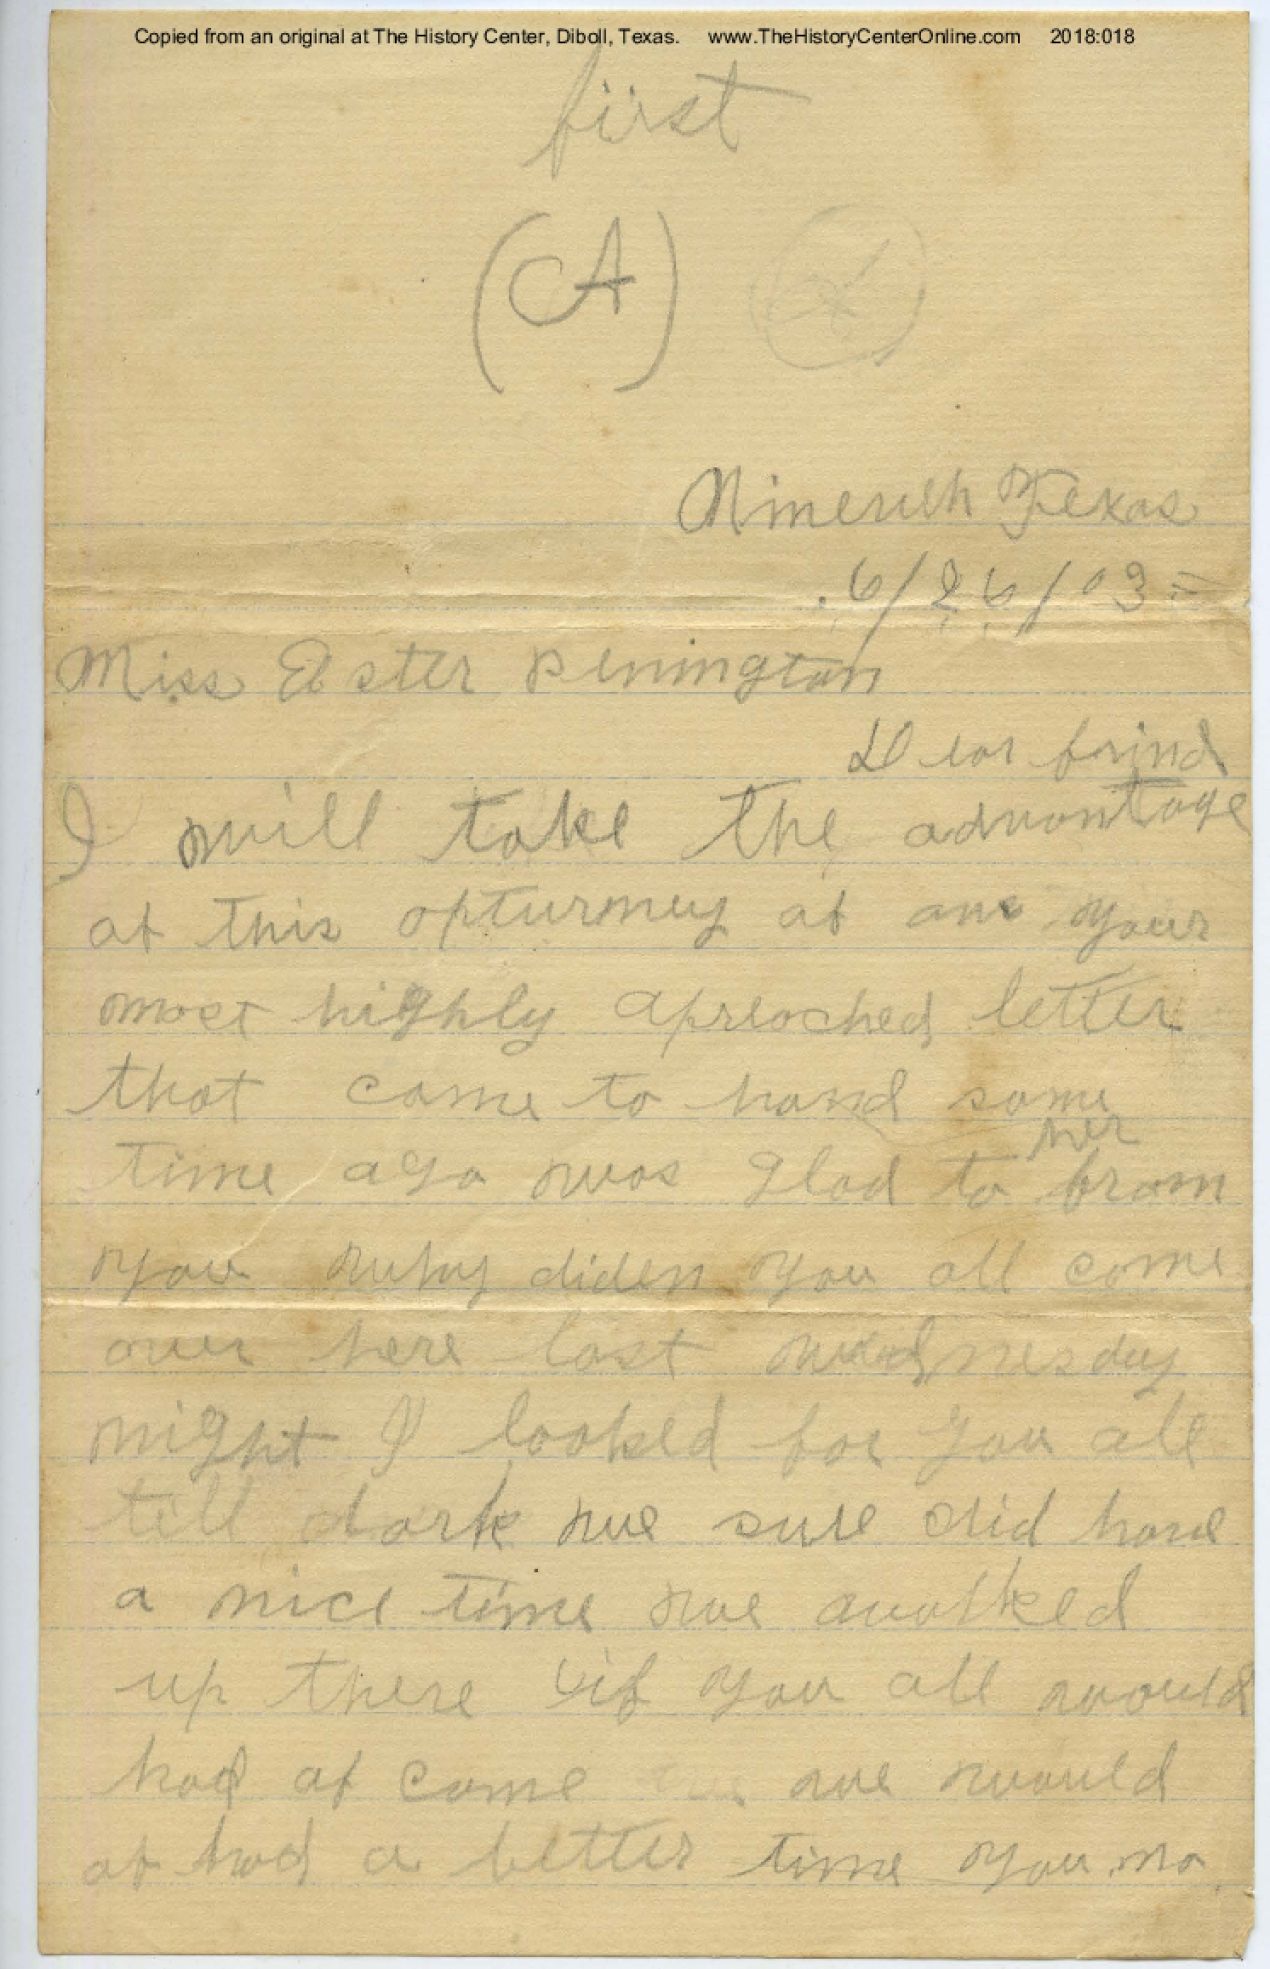 Copied from an original at The History Center, Diboll, Texas. www.TheHistoryCenterOnline.com 2018:018
first
(A)
Texas
6/26/03
Miss Ester Penington
Dear frind
I will take the advantage
of this of ans your
most highly letter
that come to hand some
time ago was glad to her from
you why diden you all come
over here last wednesday
night I looked for you all
till dark we sure did have
a nice time we walked
up there if you all would
had of come we would
of had a better time you no